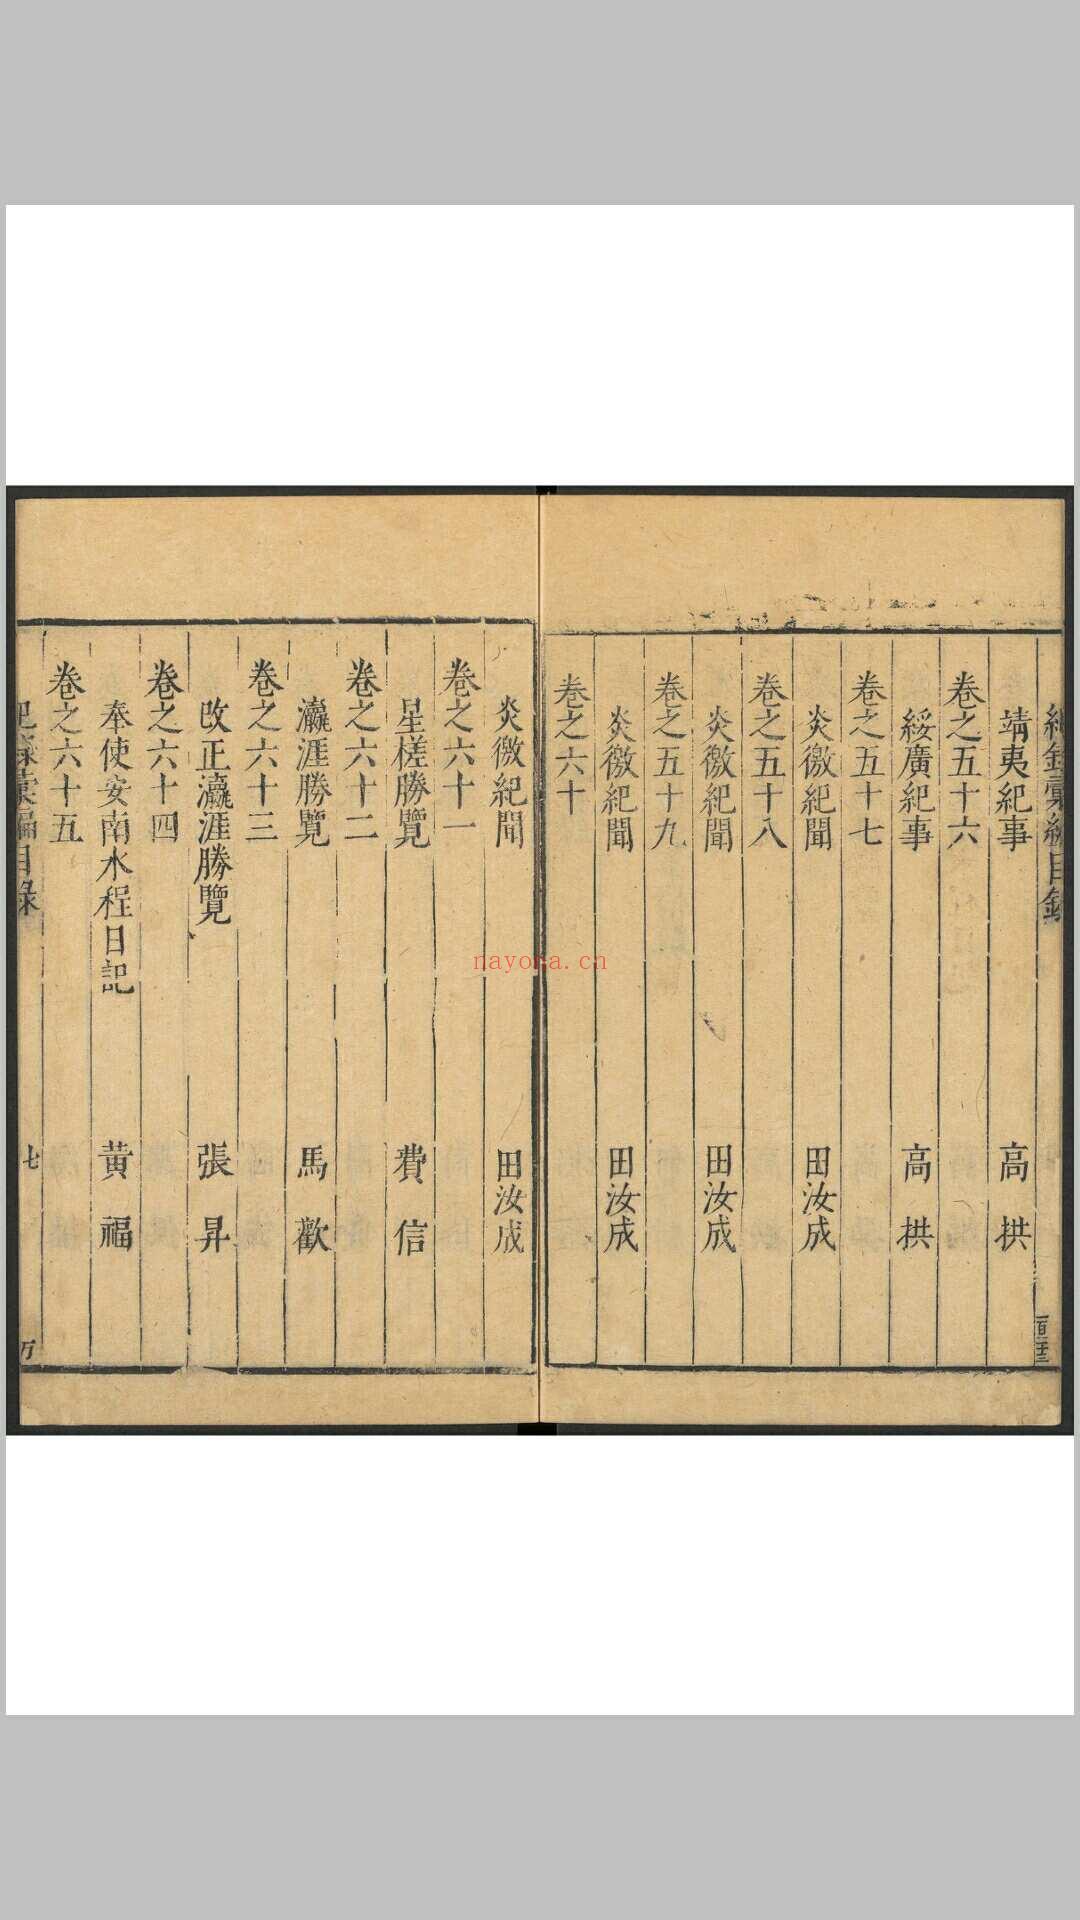 紀錄彙編目錄
靖夷紀事 高拱
卷之五十六
綏廣紀事 高拱
卷之五十七
炎徼紀聞 田汝成
卷之五十八
炎徼紀聞 田汝成
卷之五十九
炎徼紀聞 田汝成
卷之六十
炎徼紀聞 田汝成
卷之六十一
星槎勝覽 費信
卷之六十二
瀛涯勝覽 馬歡
卷之六十三
改正瀛涯勝覽 張昇
卷之六十四
奉使安南水程日記 黃福
卷之六十五
紀錄彙編目錄 七
nayona.cn